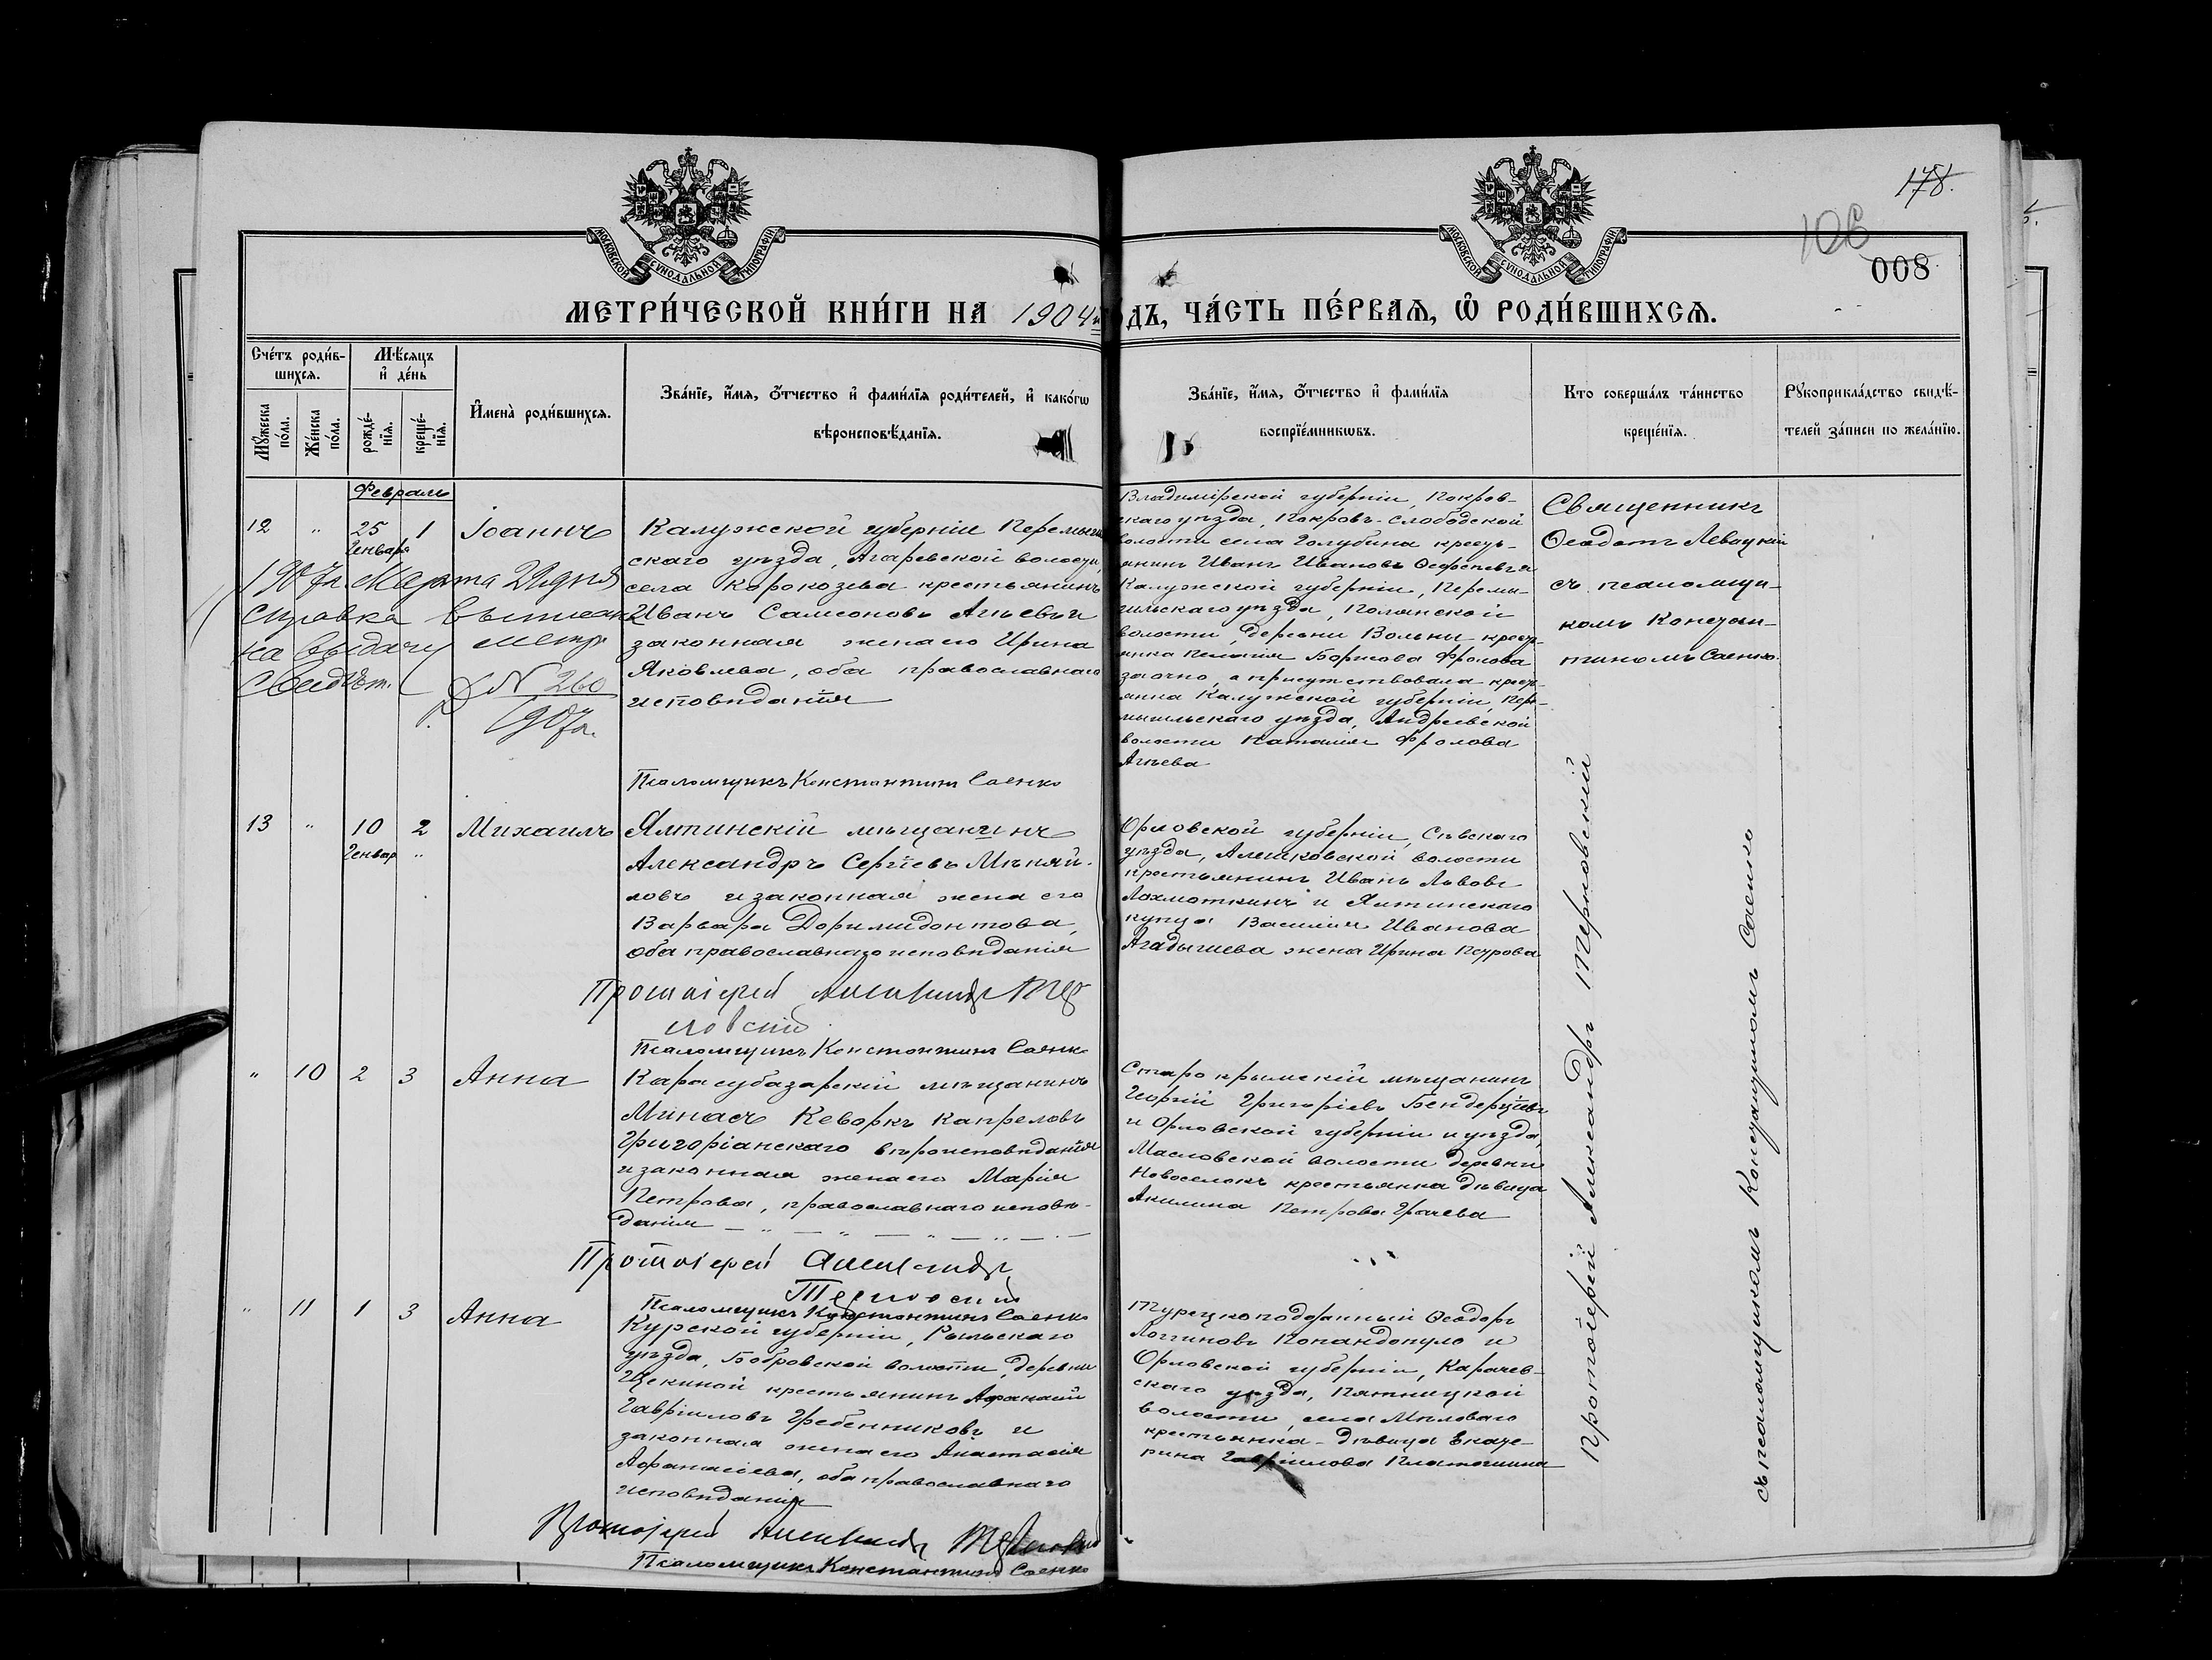 178.
106
008
МОСКОВСКОЙ СѴНОДАЛЬНОЙ ТИПОГРАФІИ
МОСКОВСКОЙ СѴНОДАЛЬНОЙ ТИПОГРАФІИ
МЕТРИ́ЧЕСКОЙ КНИ́ГИ НА 1904 й
ДЪ, ЧА́СТЬ ПЕ́РВАѦ, Ѽ РОДИ́ВШИХСѦ.
Сче́тъ роди́в-
шихсѧ.
Мꙋ́жеска по́ла.
Же́нска по́ла.
Мѣ́сѧцъ
и҆ де́нь
рожде́-
нїѧ.
креще́-
нїѧ.
И҆мена̀ роди́вшихсѧ.
Зва́нїе, и҆́мѧ, ѻ҆́тчество и҆ фами́лїѧ роди́телей, и҆ како́гѡ
вѣроисповѣ́данїѧ.
Зва́нїе, и҆́мѧ, ѻ҆́тчество и҆ фами́лїѧ
воспрїе́мникѡвъ.
Кто соверша́лъ та́инство
креще́нїѧ.
Рꙋкоприкла́дство свидѣ́-
телей за́писи по жела́нїю.
Февраль
12 " 25 1 Іоаннъ
Генваря
1907 г. Марта 21 дня
справка
на выдачу метр.
Свидѣт.
№ 260
1907 г.
Калужской губерніи Перемыш
скаго уѣзда, Агаревской волости,
села Корокозева крестьянинъ
Иванъ Самсоновъ Агѣевъ и
законная жена его Ирина
Яковлева, оба православнаго
исповѣданія
Псаломщикъ Константинъ Саенко
Владимірской губерніи, Покров-
скаго уѣзда, Покровъ-Слободской
волости села Голубина кресть-
янинъ Иванъ Ивановъ и
Калужской губерніи, Перемы-
шльскаго уѣзда, Полянской
волости деревни Вольни кресть-
янка Пелагія Борисова Фролова
заочно, а присутствовала кресть-
янка Калужской губерніи, Пере-
мышльскаго уѣзда, Андреевской
волости Наталія Фролова
Агѣева
Священникъ
Ѳеодотъ Левацкій
съ псаломщи-
комъ Констан-
тиномъ Саенко.
13 " 10 2 Михаилъ
Генвар "
Ялтинскій мѣщанинъ
Александръ Сергіевъ Мѣняй-
ловъ и законная жена его
Варвара Доримидонтова,
оба православнаго исповѣданія
Протоіерей Александръ Тер
новскій
Псаломщикъ Константинъ Саенко
Орловской губерніи, Сѣвскаго
уѣзда, Алешковской волости
крестьянинъ Иванъ Львовъ
Лохмоткинъ и Ялтинскаго
купца Василія Иванова
Агадышева жена Ирина Петрова
" 10 2 3 Анна
Карасубазарскій мѣщанинъ
Минасъ Кеворкъ Капреловъ
Григоріанскаго вѣроисповѣданія
и законная жена его Марія
Петрова, православнаго исповѣ-
данія — " — " — " — " —
Протоіерей Александръ
Терновскій
Псаломщикъ Константинъ Саенко
Старокрымскій мѣщанинъ
Георгій Григоріевъ Бендерцѣвъ
и Орловской губерніи и уѣзда,
Масловской волости деревни
Новоселокъ крестьянка дѣвица
Акилина Петрова Грачева
" 11 1 3 Анна
Курской губерніи, Рыльскаго
уѣзда, Бобровской волости, деревни
Щекиной крестьянинъ Афанасій
Гавріиловъ Гребенниковъ и
законная жена его Анастасія
Афанасіева, оба православнаго
исповѣданія
Протоіерей Александръ Терновскій
Псаломщикъ Константинъ Саенко
Турецкоподданный Ѳеодоръ
Логгиновъ Попандопуло и
Орловской губерніи, Карачев-
скаго уѣзда, Пятницкой
волости, села Милового
крестьянка-дѣвица Екате-
рина Гавріилова Платошина
Протоіерей Александръ Терновскій
съ псаломщикомъ Константиномъ Саенко